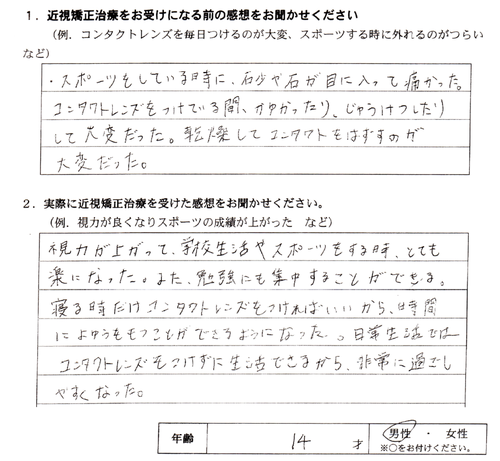 1．近視矯正治療をお受けになる前の感想をお聞かせください
（例．コンタクトレンズを毎日つけるのが大変、スポーツする時に外れるのがつらい
など）
・スポーツをしている時に、砂や石が目に入って痛かった。
コンタクトレンズをつけている間、かゆかったり、じゅうけつしたり
して大変だった。乾燥してコンタクトをはずすのが
大変だった。
2．実際に近視矯正治療を受けた感想をお聞かせください。
（例．視力が良くなりスポーツの成績が上がった　など）
視力が上がって、学校生活やスポーツをする時、とても
楽になった。また、勉強にも集中することができる。
寝る時だけコンタクトレンズをつければいいから、時間
によゆうをもつことができるようになった。日常生活では
コンタクトレンズをつけずに生活できるから、非常に過ごし
やすくなった。
年齢　14　才　男性　・　女性
※○をお付けください。